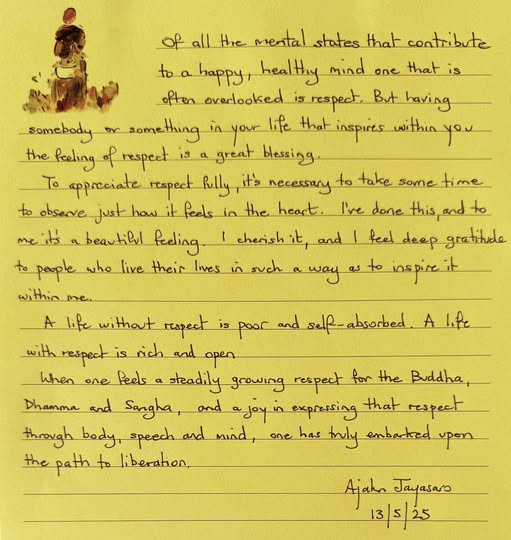 Of all the mental states that contribute
to a happy, healthy mind one that is
often overlooked is respect. But having
somebody or something in your life that inspires within you
the feeling of respect is a great blessing.
To appreciate respect fully, it's necessary to take some time
to observe just how it feels in the heart. I've done this, and to
me it's a beautiful feeling. I cherish it, and I feel deep gratitude
to people who live their lives in such a way as to inspire it
within me.
A life without respect is poor and self-absorbed. A life
with respect is rich and open
When one feels a steadily growing respect for the Buddha,
Dhamma and Sangha, and a joy in expressing that respect
through body, speech and mind, one has truly embarked upon
the path to liberation.
Ajahn Jayasaro
13/5/25